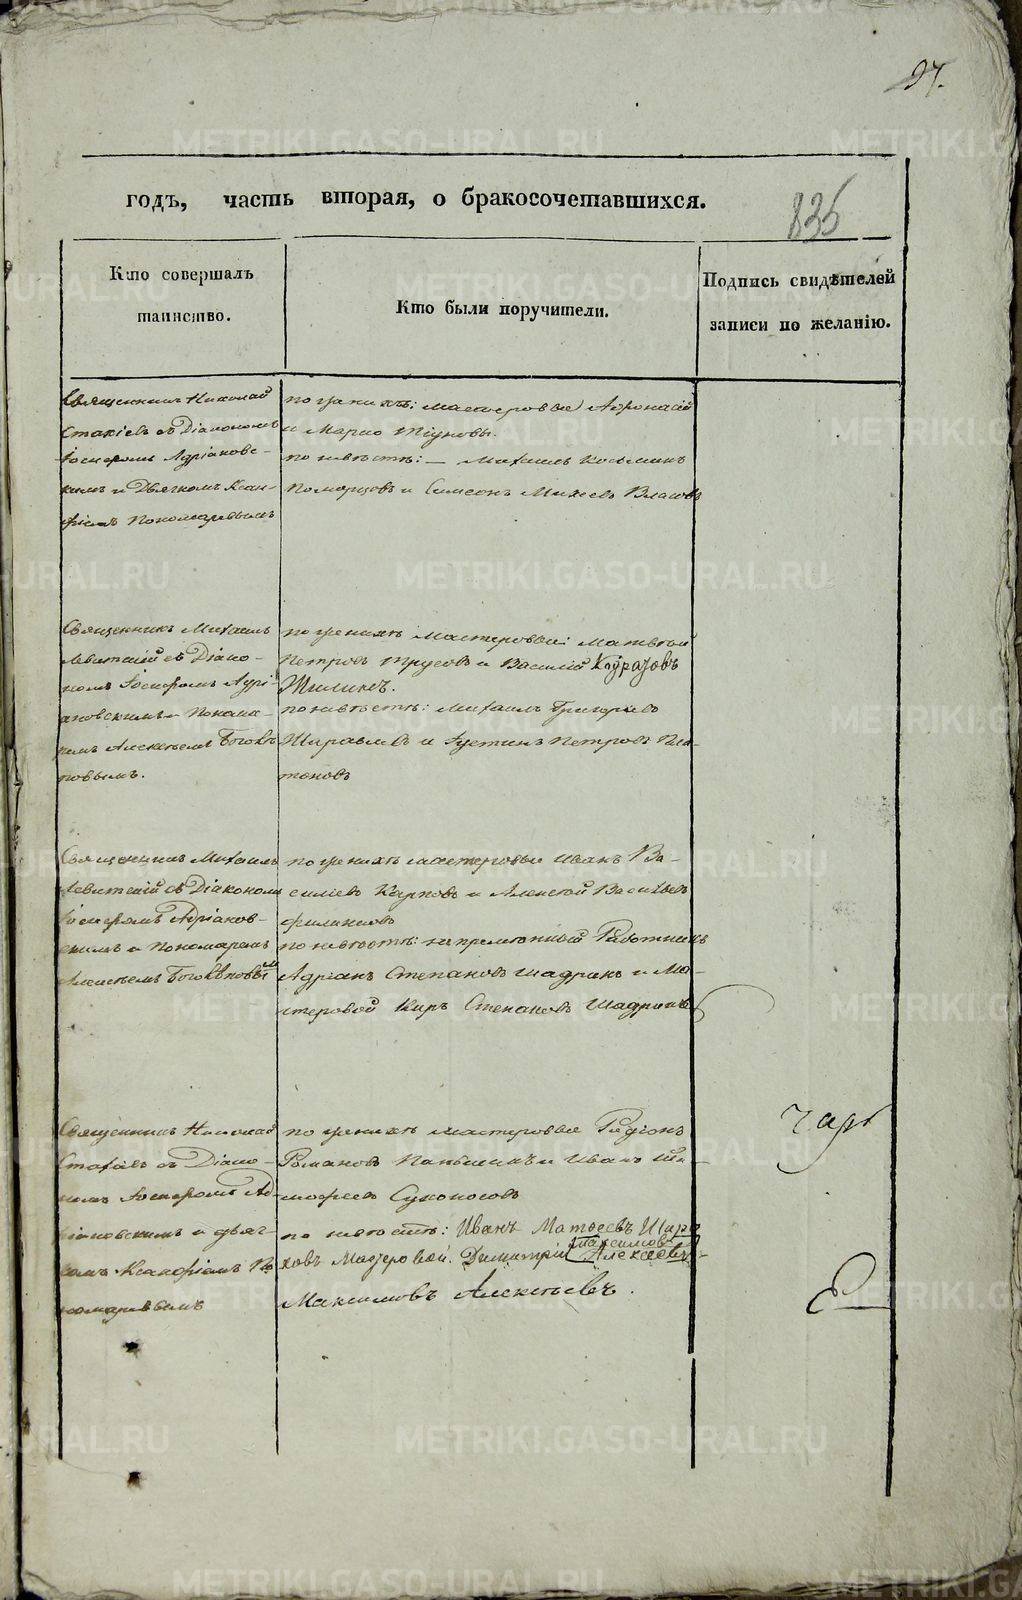 97.
годъ, часть вторая, о бракосочетавшихся.
835
Кто совершалъ
таинство.
Кто были поручители.
Подпись свидѣтелей
записи по желанію.
Священникъ Николай
Стахіевъ съ Діакономъ
Іосифомъ Адріановс-
кимъ и Дьячкомъ Ксен-
Пономаревымъ
по женихѣ: мастеровые Афонасій
и Марко
по невѣстѣ: – Михаилъ Козьминъ
Поморцовъ и Симеонъ Михеевъ Власовъ
Священникъ Михаилъ
Левитскій съ Діако-
номъ Іосифомъ Адрі-
ановскимъ и Понома-
ремъ Алексѣемъ
повымъ.
по женихѣ мастеровые: Матвѣй
Петровъ Трусовъ и Василій
по невѣстѣ: Михаилъ Григорьевъ
Журавлевъ и Іустинъ Петровъ Пла-
тоновъ
Священникъ Михаилъ
Левитскій съ Діакономъ
Іосифомъ Адріанов-
скимъ и Пономаремъ
Алексѣемъ
по женихѣ мастеровые Иванъ Ва-
сильевъ Карповъ и Алексѣй Васильевъ
Филинковъ
по невѣстѣ: непремѣнный Работникъ
Адріанъ Степановъ Шадринъ и Ма-
стеровой Киръ Степановъ Шадринъ
Священникъ Николай
Стахіевъ съ Діако-
номъ Іосифомъ Ад-
ріановскимъ и дьяч-
комъ Ксенофонтомъ По-
номаревымъ
по женихѣ мастеровые Родіонъ
Романовъ Паньшинъ и Иванъ Ти-
мофеевъ Сухоносовъ
по невѣстѣ: Иванъ Матвеевъ Шара-
Максимовъ
ховъ Мастеровой. Димитрій Алексеевъ
Максимовъ Алексѣевъ.